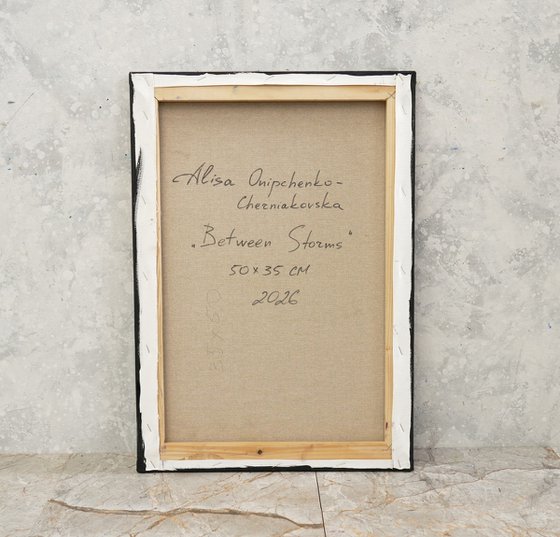 Alisa Onipchenko-
Cherniakovska
„Between Storms"
50 x 35 см
2026